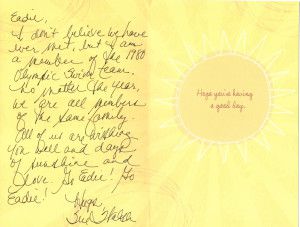 Eadie,
I don't believe we have
ever met, but I am
a member of the 1980
Olympic Swim Team.
No matter the year,
we are all members
of the same family.
All of us are wishing
you well and days
of sunshine and
love. Go Eadie! Go
Eadie!
Hugs,
Hope you're having
a good day.